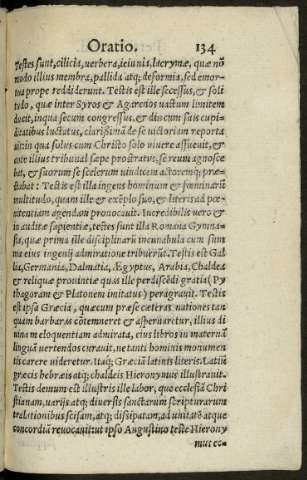 Oratio. 134
Testes sunt, cilicia, verbera, ieiunia, lacrymæ, quæ nō
modo illius membra, pallida atq; deformia, sed emor-
tua prope reddiderunt. Testis est ille secessus, & soli
tudo, quæ inter Syros & Agarenos vastum limitem
docet, inqua secum congressus, & diu cum suis cupi-
ditatibus luctatus, clarissimã de se victoriam reporta
uit: in qua solus cum Christo solo viuere assueuit, &
ante illius tribunal sæpe prostratus, se reum agnosce
bat, & suorum se scelerum vindicem actoremq; præ-
stabat: Testis est illa ingens hominum & fœminarũ
multitudo, quam ille & exẽplo suo, & literis ad pœ-
nitentiam agendam prouocauit. Incredibilis vero &
in auditæ sapientiæ, testes sunt illa Romana Gymna-
sia, quæ prima ille disciplinarũ incunabula cum sum
ma eius ingenij admiratione tribuerũt. Testis est Gal
lia, Germania, Dalmatia, Ægyptus, Arabia, Chaldea
& reliquæ prouintiæ quas ille perdiscẽdi gratia (Py
thagoram & Platonem imitatus) peragrauit. Testis
est ipsa Græcia, quæcum præ se cæteras nationes tan
quam barbaras cõtemneret & aspernaretur, illius di
uinam eloquentiam admirata, eius libros in maternã
linguã vertendos curauit, ne tanti hominis monumen
tis carere videretur. Itaq; Græciã latinis literis. Latiũ
græcis hebræis atq; chaldeis Hieronymus illustrauit.
Testis demum est illustris ille labor, quo ecclesiã Chri
stianam, varijs atq; diuersis sanctarum scripturarum
traditionibus scisam, atq; dissipatam, ad vnitatẽ atque
concordiã reuocauit: ut ipso Augustino teste Hierony
mus ec-